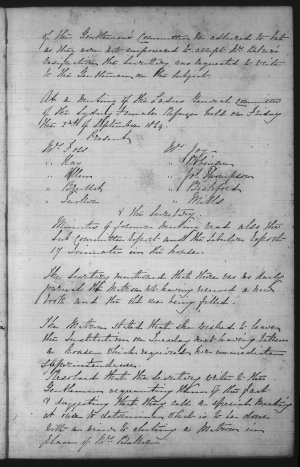 of the Gentlemens Committee be adhered to but
as they were not empowered to accept Mr
resignation the Secretary was requested to write
to the Gentlemen on the subject.
At a meeting of the Ladies General Committee
of the Sydney Female Refuge held on Friday
the 2nd of September 1864.
Present
Mrs Mrs Joy
" Hay " Robinson
" " Jos Thompson
" " Bickford
" " Mills
& the Secretary.
Minutes of former meeting read also the
Sub Committee report and the
17 Inmates in the house.
The Secretary mentioned that there was no daily
journal the Matron not having received a new
book and the old one being filled.
The Matron stated that she wished to leave
the Institution on Tuesday next having taken
a house which required her immediate
superintendence.
Resolved that the Secretary write to the
Gentlemen acquainting them of the fact
& suggesting that they call a special meeting
at once to determine what is to be done
with a view to electing a Matron in
place of Mrs